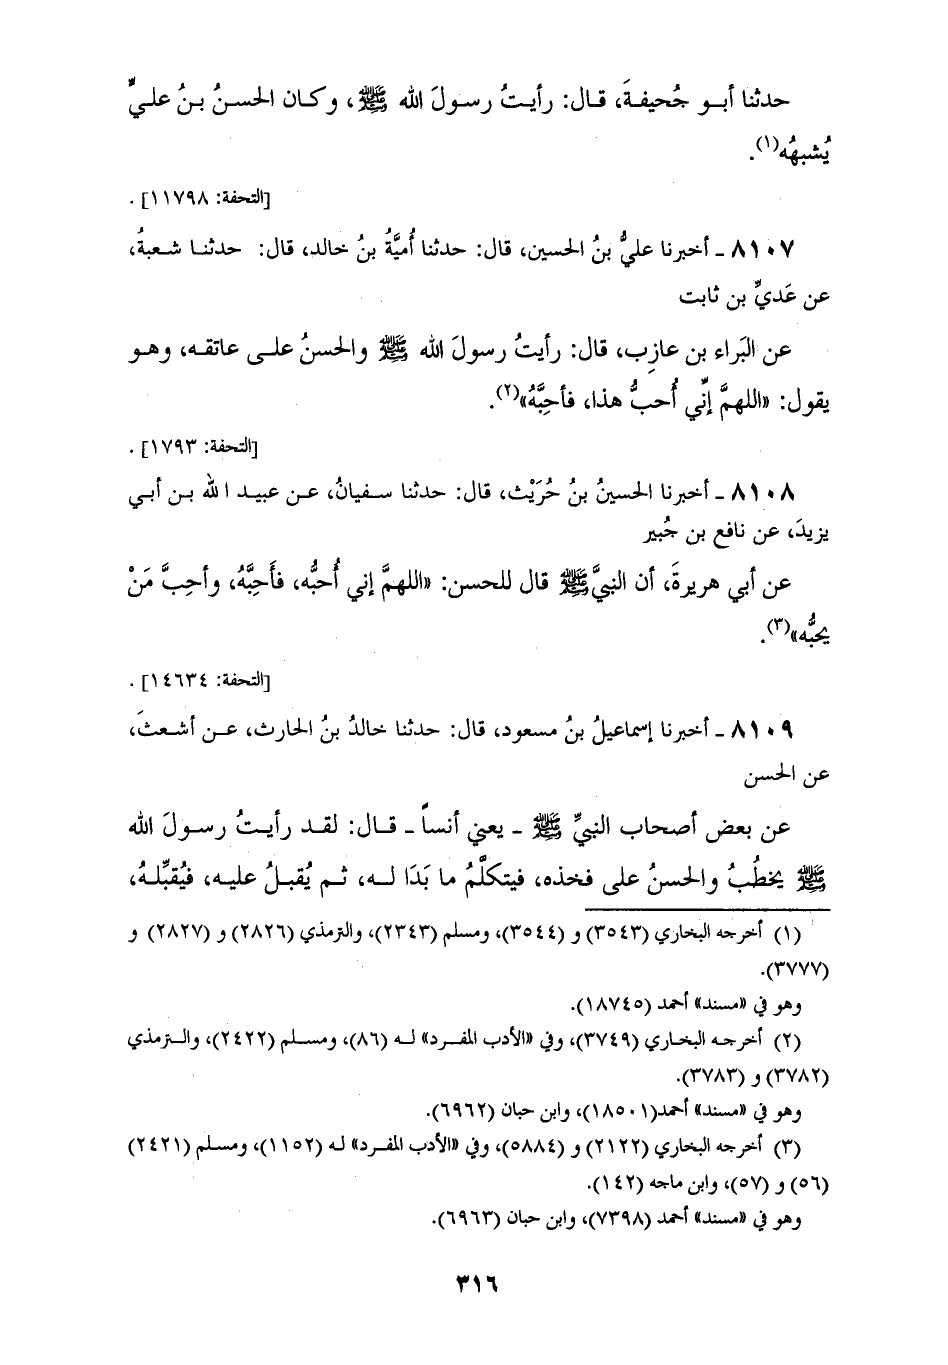 حدثنا أبو جُحيفةَ، قال: رأيتُ رسولَ الله ﷺ، وكان الحسنُ بنُ عليٍّ
يُشبهُه(١).
[التحفة: ١١٧٩٨].
٨١٠٧ ـ أخبرنا عليُّ بنُ الحسين، قال: حدثنا أُميَّةُ بنُ خالد، قال: حدثنا شعبةُ،
عن عَديِّ بن ثابت
عن البَراء بن عازِب، قال: رأيتُ رسولَ الله ﷺ والحسنُ على عاتقه، وهو
يقول: «اللهمَّ إنِّي أُحبُّ هذا، فأحِبَّهُ»(٢).
[التحفة: ١٧٩٣].
٨١٠٨ ـ أخبرنا الحسينُ بنُ حُرَيْث، قال: حدثنا سفيانُ، عن عبيد الله بن أبي
يزيدَ، عن نافع بن جُبير
عن أبي هريرةَ، أن النبيَّ ﷺ قال للحسن: «اللهمَّ إني أُحبُّه، فأَحِبَّهُ، وأحِبَّ مَنْ
يحبُّه»(٣).
[التحفة: ١٤٦٣٤].
٨١٠٩ ـ أخبرنا إسماعيلُ بنُ مسعود، قال: حدثنا خالدُ بنُ الحارث، عن أشعثَ،
عن الحسن
عن بعض أصحاب النبيِّ ﷺ ـ يعني أنساً ـ قال: لقد رأيتُ رسولَ الله
ﷺ يخطُبُ والحسنُ على فخذه، فيتكلَّمُ ما بَدَا له، ثم يُقبلُ عليه، فيُقبِّلهُ،
(١) أخرجه البخاري (٣٥٤٣) و (٣٥٤٤)، ومسلم (٢٣٤٣)، والترمذي (٢٨٢٦) و (٢٨٢٧) و
(٣٧٧٧).
وهو في «مسند» أحمد (١٨٧٤٥).
(٢) أخرجه البخاري (٣٧٤٩)، وفي «الأدب المفرد» له (٨٦)، ومسلم (٢٤٢٢)، والترمذي
(٣٧٨٢) و (٣٧٨٣).
وهو في «مسند» أحمد(١٨٥٠١)، وابن حبان (٦٩٦٢).
(٣) أخرجه البخاري (٢١٢٢) و (٥٨٨٤)، وفي «الأدب المفرد» له (١١٥٢)، ومسلم (٢٤٢١)
(٥٦) و (٥٧)، وابن ماجه (١٤٢).
وهو في «مسند» أحمد (٧٣٩٨)، وابن حبان (٦٩٦٣).
٣١٦